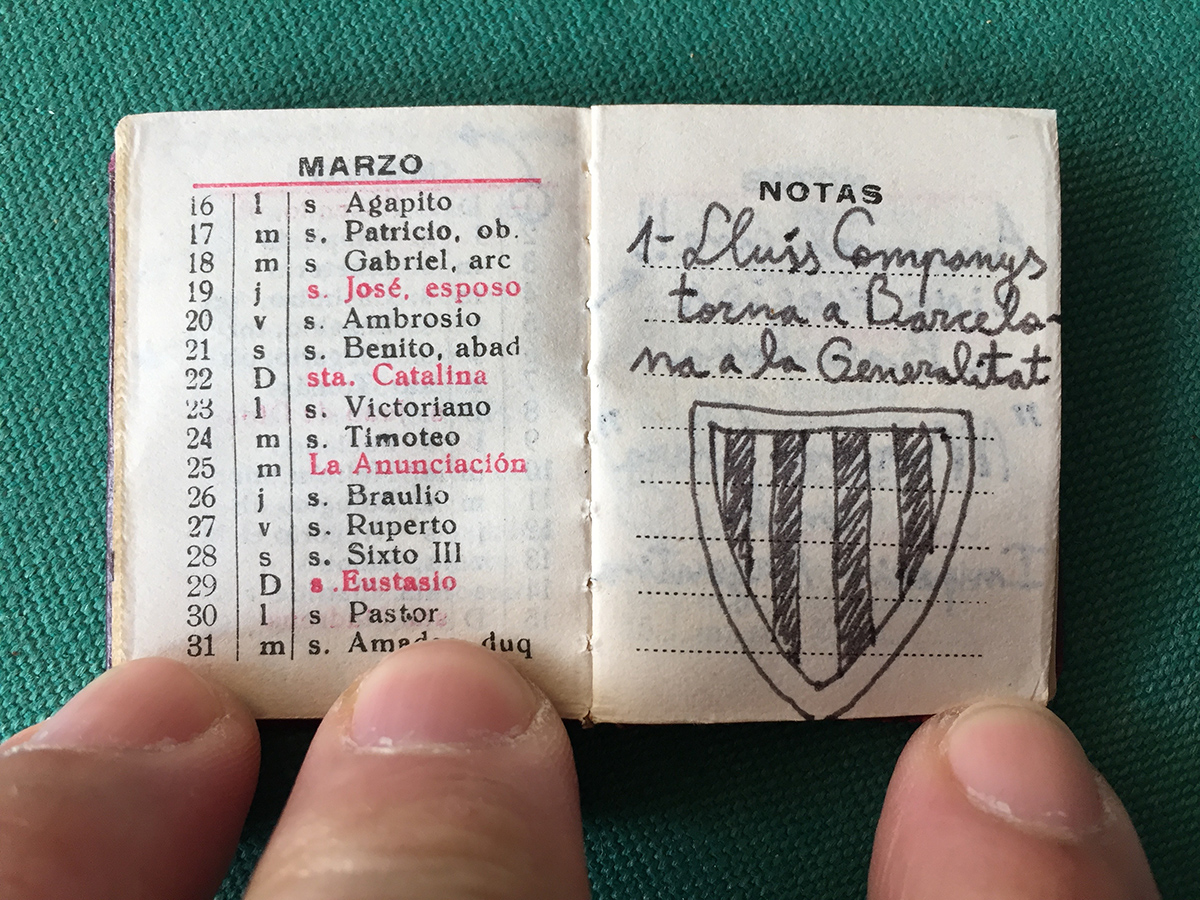 MARZO
16 l s Agapito
17 m s. Patricio, ob.
18 m s Gabriel, arc
19 j s. José, esposo
20 v s. Ambrosio
21 s s. Benito, abad
22 D sta. Catalina
23 l s. Victoriano
24 m s. Timoteo
25 m La Anunciación
26 j s. Braulio
27 v s. Ruperto
28 s s. Sixto III
29 D s.Eustasio
30 l s Pastor
31 m s. duq
NOTAS
1- Lluís Companys
torna a Barcelo-
na a la Generalitat